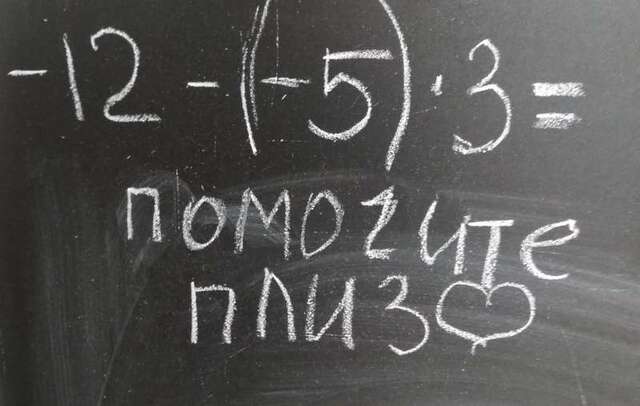 -12 - (-5) · 3 =
помогите
плиз♡